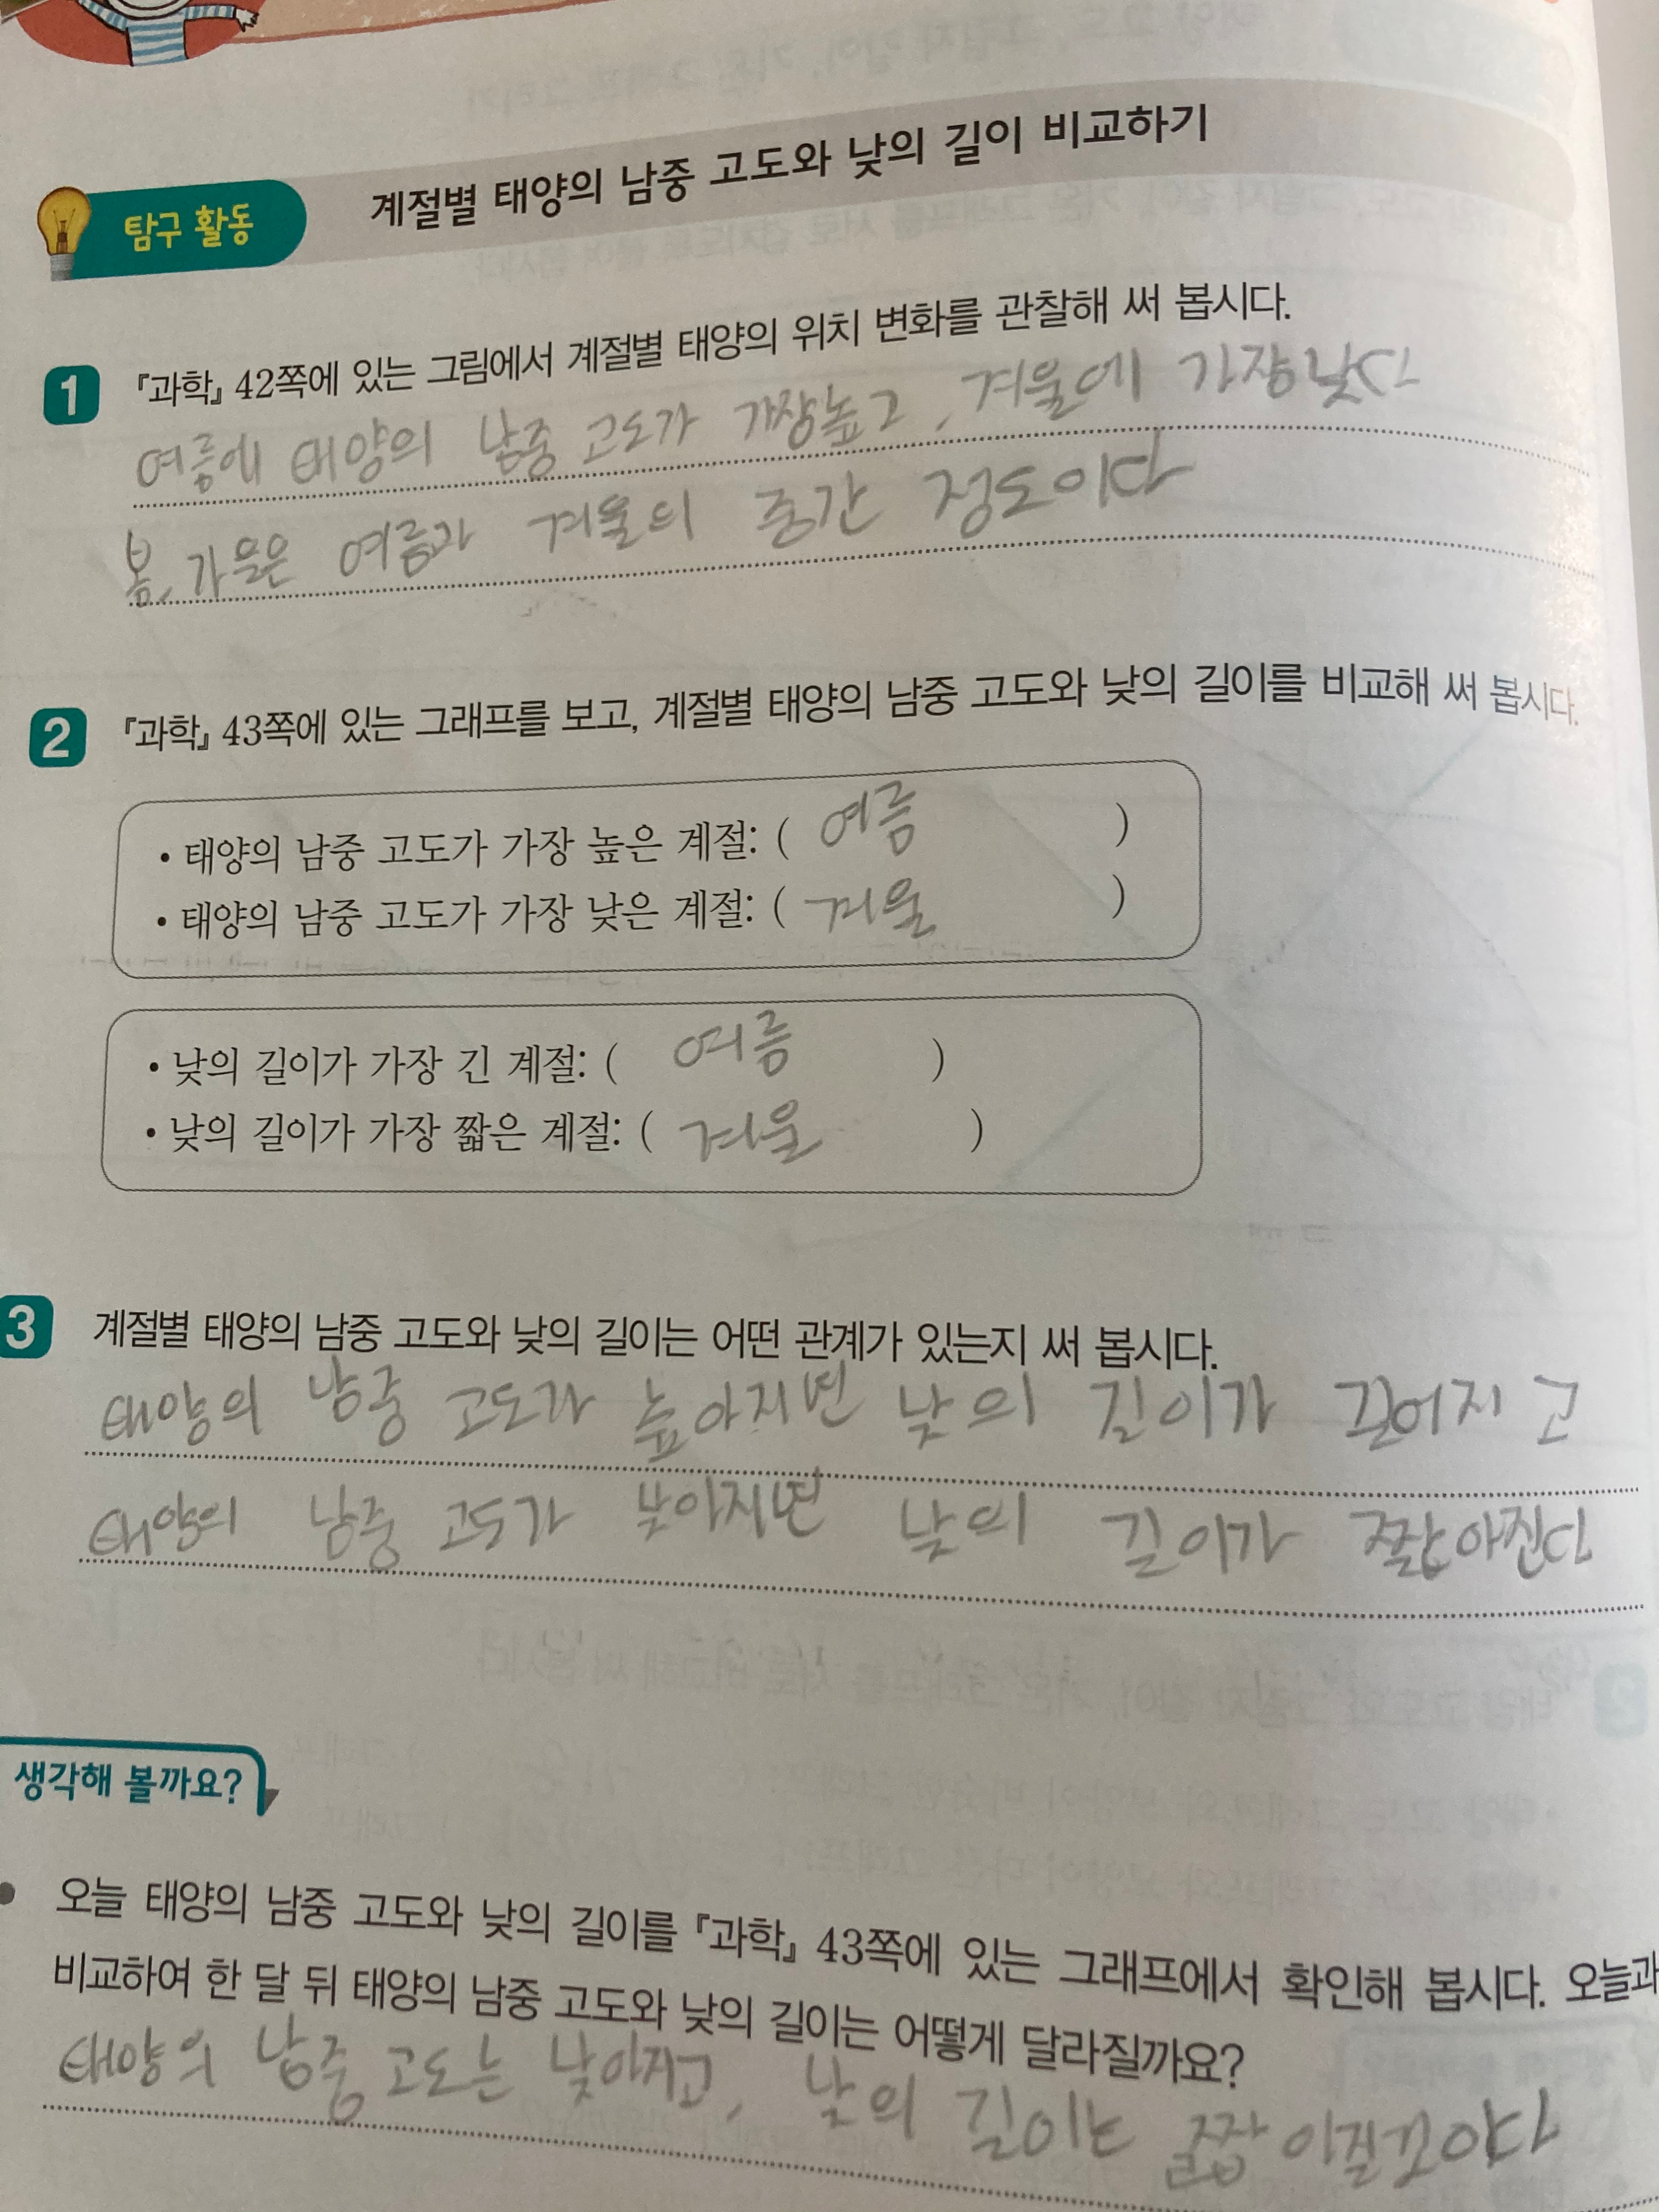 탐구 활동
계절별 태양의 남중 고도와 낮의 길이 비교하기
1 『과학』 42쪽에 있는 그림에서 계절별 태양의 위치 변화를 관찰해 써 봅시다.
여름에 태양의 남중 고도가 가장높고, 겨울에 가장낮다
봄, 가을은 여름과 겨울의 중간 정도이다
2 『과학』 43쪽에 있는 그래프를 보고, 계절별 태양의 남중 고도와 낮의 길이를 비교해 써 봅시다.
• 태양의 남중 고도가 가장 높은 계절: ( 여름 )
• 태양의 남중 고도가 가장 낮은 계절: ( 겨울 )
• 낮의 길이가 가장 긴 계절: ( 여름 )
• 낮의 길이가 가장 짧은 계절: ( 겨울 )
3 계절별 태양의 남중 고도와 낮의 길이는 어떤 관계가 있는지 써 봅시다.
태양의 남중 고도가 높아지면 낮의 길이가 길어지고
태양의 남중 고도가 낮아지면 낮의 길이가 짧아진다
생각해 볼까요?
• 오늘 태양의 남중 고도와 낮의 길이를 『과학』 43쪽에 있는 그래프에서 확인해 봅시다. 오늘과
비교하여 한 달 뒤 태양의 남중 고도와 낮의 길이는 어떻게 달라질까요?
태양의 남중 고도는 낮아지고, 낮의 길이는